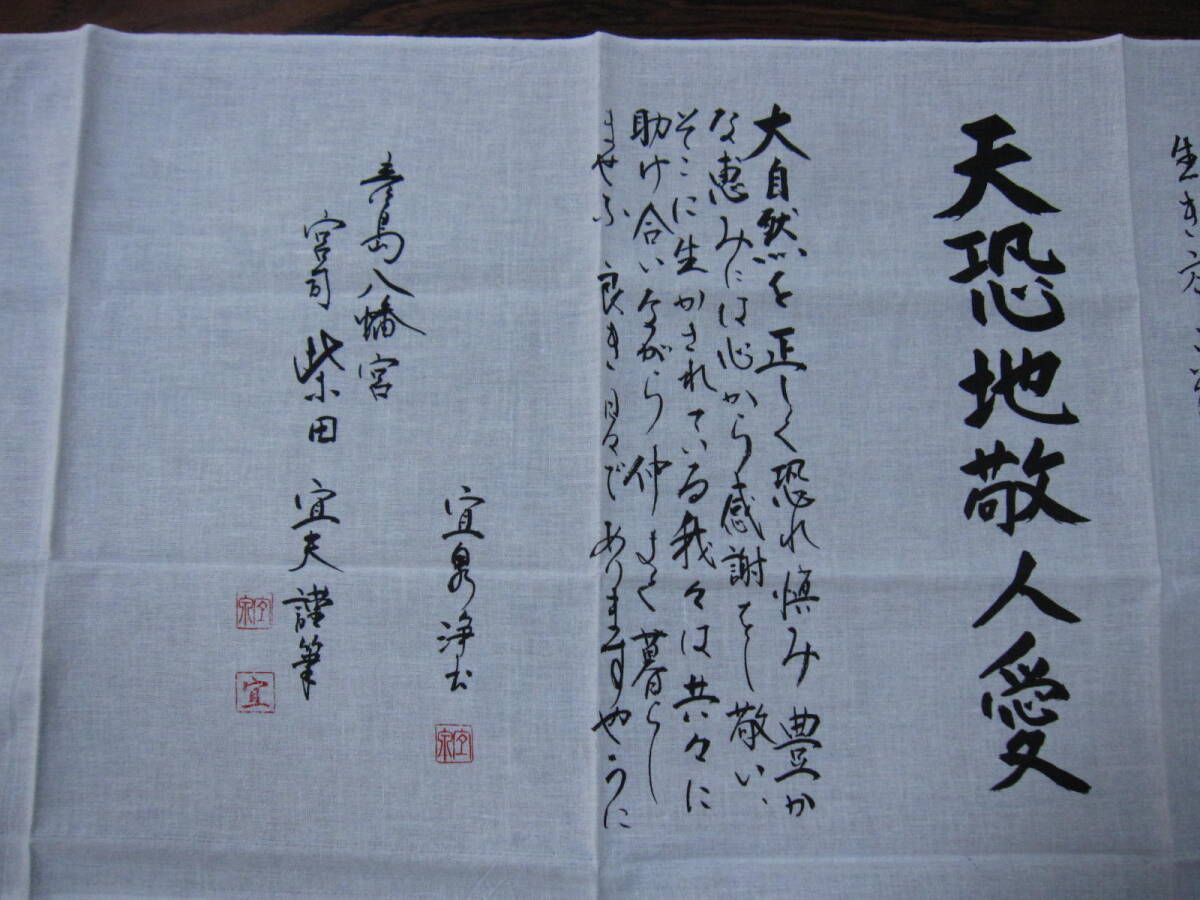 生き
天恐地敬人愛
大自然を正しく恐れ慎み 豊か
な恵みには心から感謝をし敬い、
そこに生かされている我々は共々に
助け合いながら仲よく暮らし
ませふ 良き日々でありますやうに
宜泉浄書
島八幡宮
宮司 柴田 宜夫 謹筆
宜